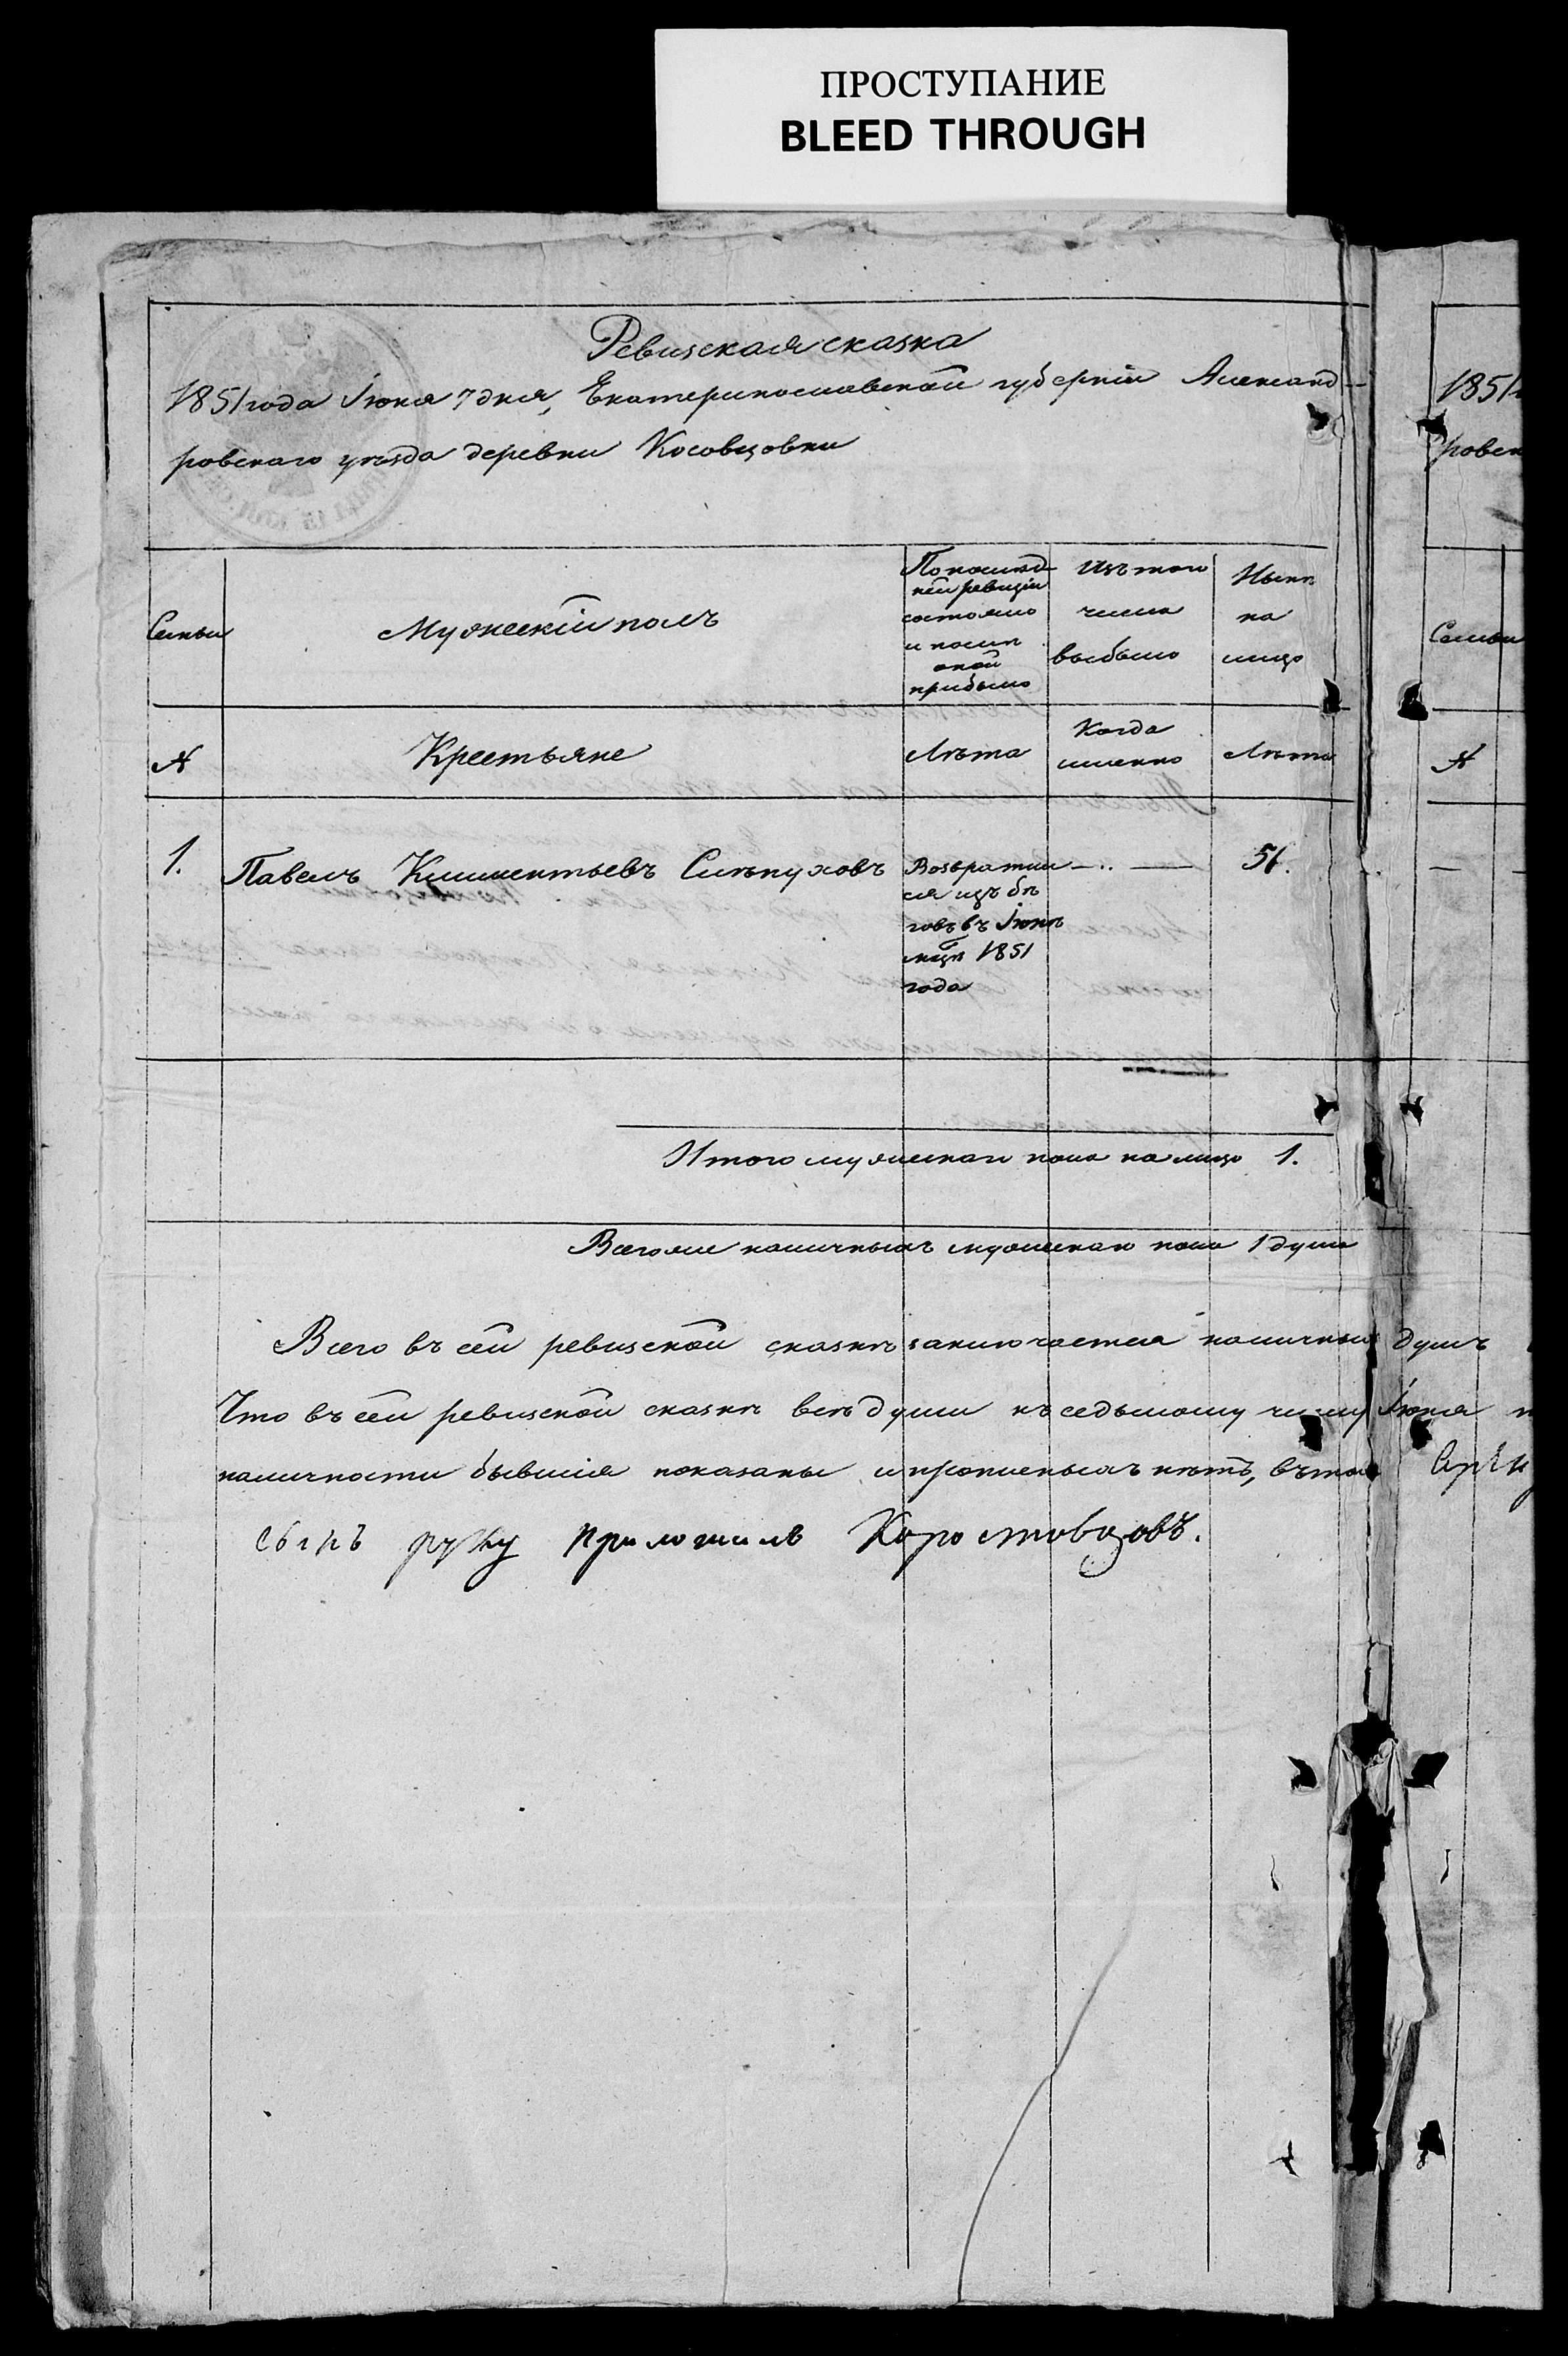 ПРОСТУПАНИЕ
BLEED THROUGH
Ревизская сказка
1851 года Іюня 7 дня, Екатеринославской губерніи Александ-
ровскаго уѣзда деревни Косовцовки
Семьи
Мужескій полъ
По послѣд-
ней ревизіи
состояло
и послѣ
оной
прибыло
Изъ того
числа
выбыло
Нынѣ
на
лицо
№
Крестьяне
Лѣта
Когда
именно
Лѣта
1.
Павелъ Климентьевъ Слѣпуховъ
Возвратил
ся изъ бѣ
говъ въ Іюнѣ
мцѣ 1851
года
51.
Итого мужескаго пола на лицо 1.
Всего же наличныхъ мужескаго пола 1 душа
Всего въ сей ревизской сказкѣ заключается наличныхъ душъ
Что въ сей ревизской сказкѣ всѣ души къ седьмому числу Іюня
наличности бывшія показаны и прописныхъ нѣтъ, въ томъ
руку приложилъ Коростовцовъ.
1851
ровск
Семьи
№